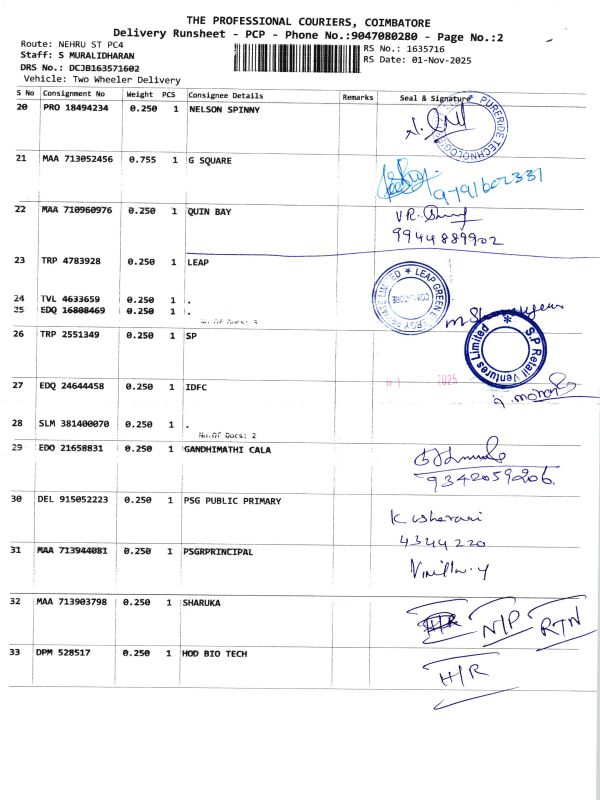 THE PROFESSIONAL COURIERS, COIMBATORE
Delivery Runsheet - PCP - Phone No.:9047080280 - Page No.:2
Route: NEHRU ST PC4
Staff: S MURALIDHARAN
DRS No.: DCJB163571602
Vehicle: Two Wheeler Delivery
RS No.: 1635716
RS Date: 01-Nov-2025
S No Consignment No Weight PCS Consignee Details Remarks Seal & Signature
20 PRO 18494234 0.250 1 NELSON SPINNY
PURERIDE TECHNOLOG
21 MAA 713052456 0.755 1 G SQUARE
9791602331
22 MAA 710960976 0.250 1 QUIN BAY
9944889902
23 TRP 4783928 0.250 1 LEAP
LEAP GREEN ENERGY PRIVATE LIMITED
COIMBATORE
24 TVL 4633659 0.250 1 .
25 EDQ 16808469 0.250 1 .
No.Of Docs: 3
26 TRP 2551349 0.250 1 SP
S.P Retail Ventures Limited
2025
27 EDQ 24644458 0.250 1 IDFC
28 SLM 381400070 0.250 1 .
No.Of Docs: 2
29 EDO 21658831 0.250 1 GANDHIMATHI CALA
9342059206
30 DEL 915052223 0.250 1 PSG PUBLIC PRIMARY
K usharani
4344220
31 MAA 713944081 0.250 1 PSGRPRINCIPAL
32 MAA 713903798 0.250 1 SHARUKA
N/P RTN
33 DPM 528517 0.250 1 HOD BIO TECH
H/R